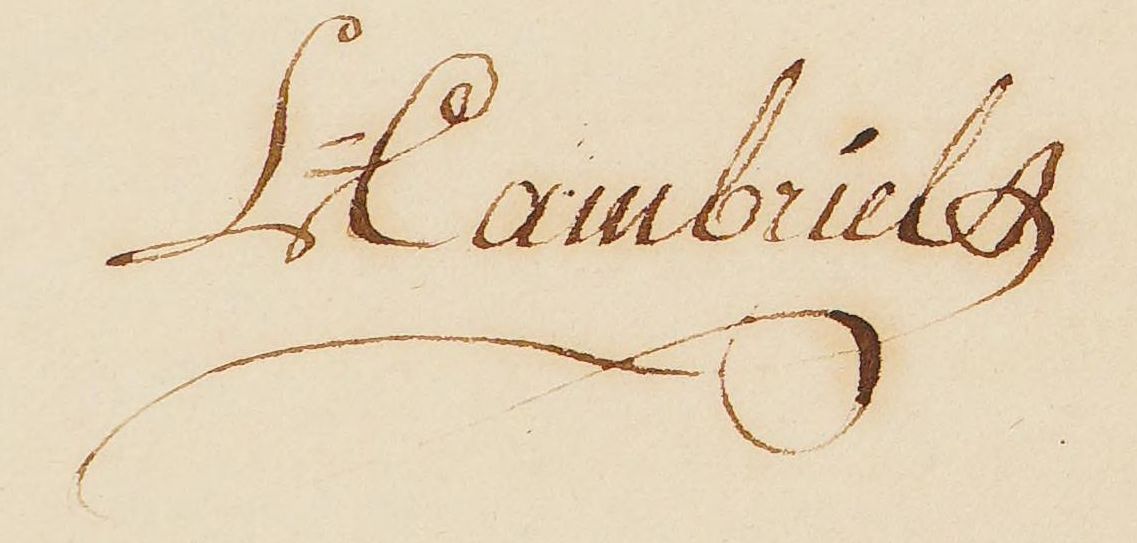 L= Cambriel